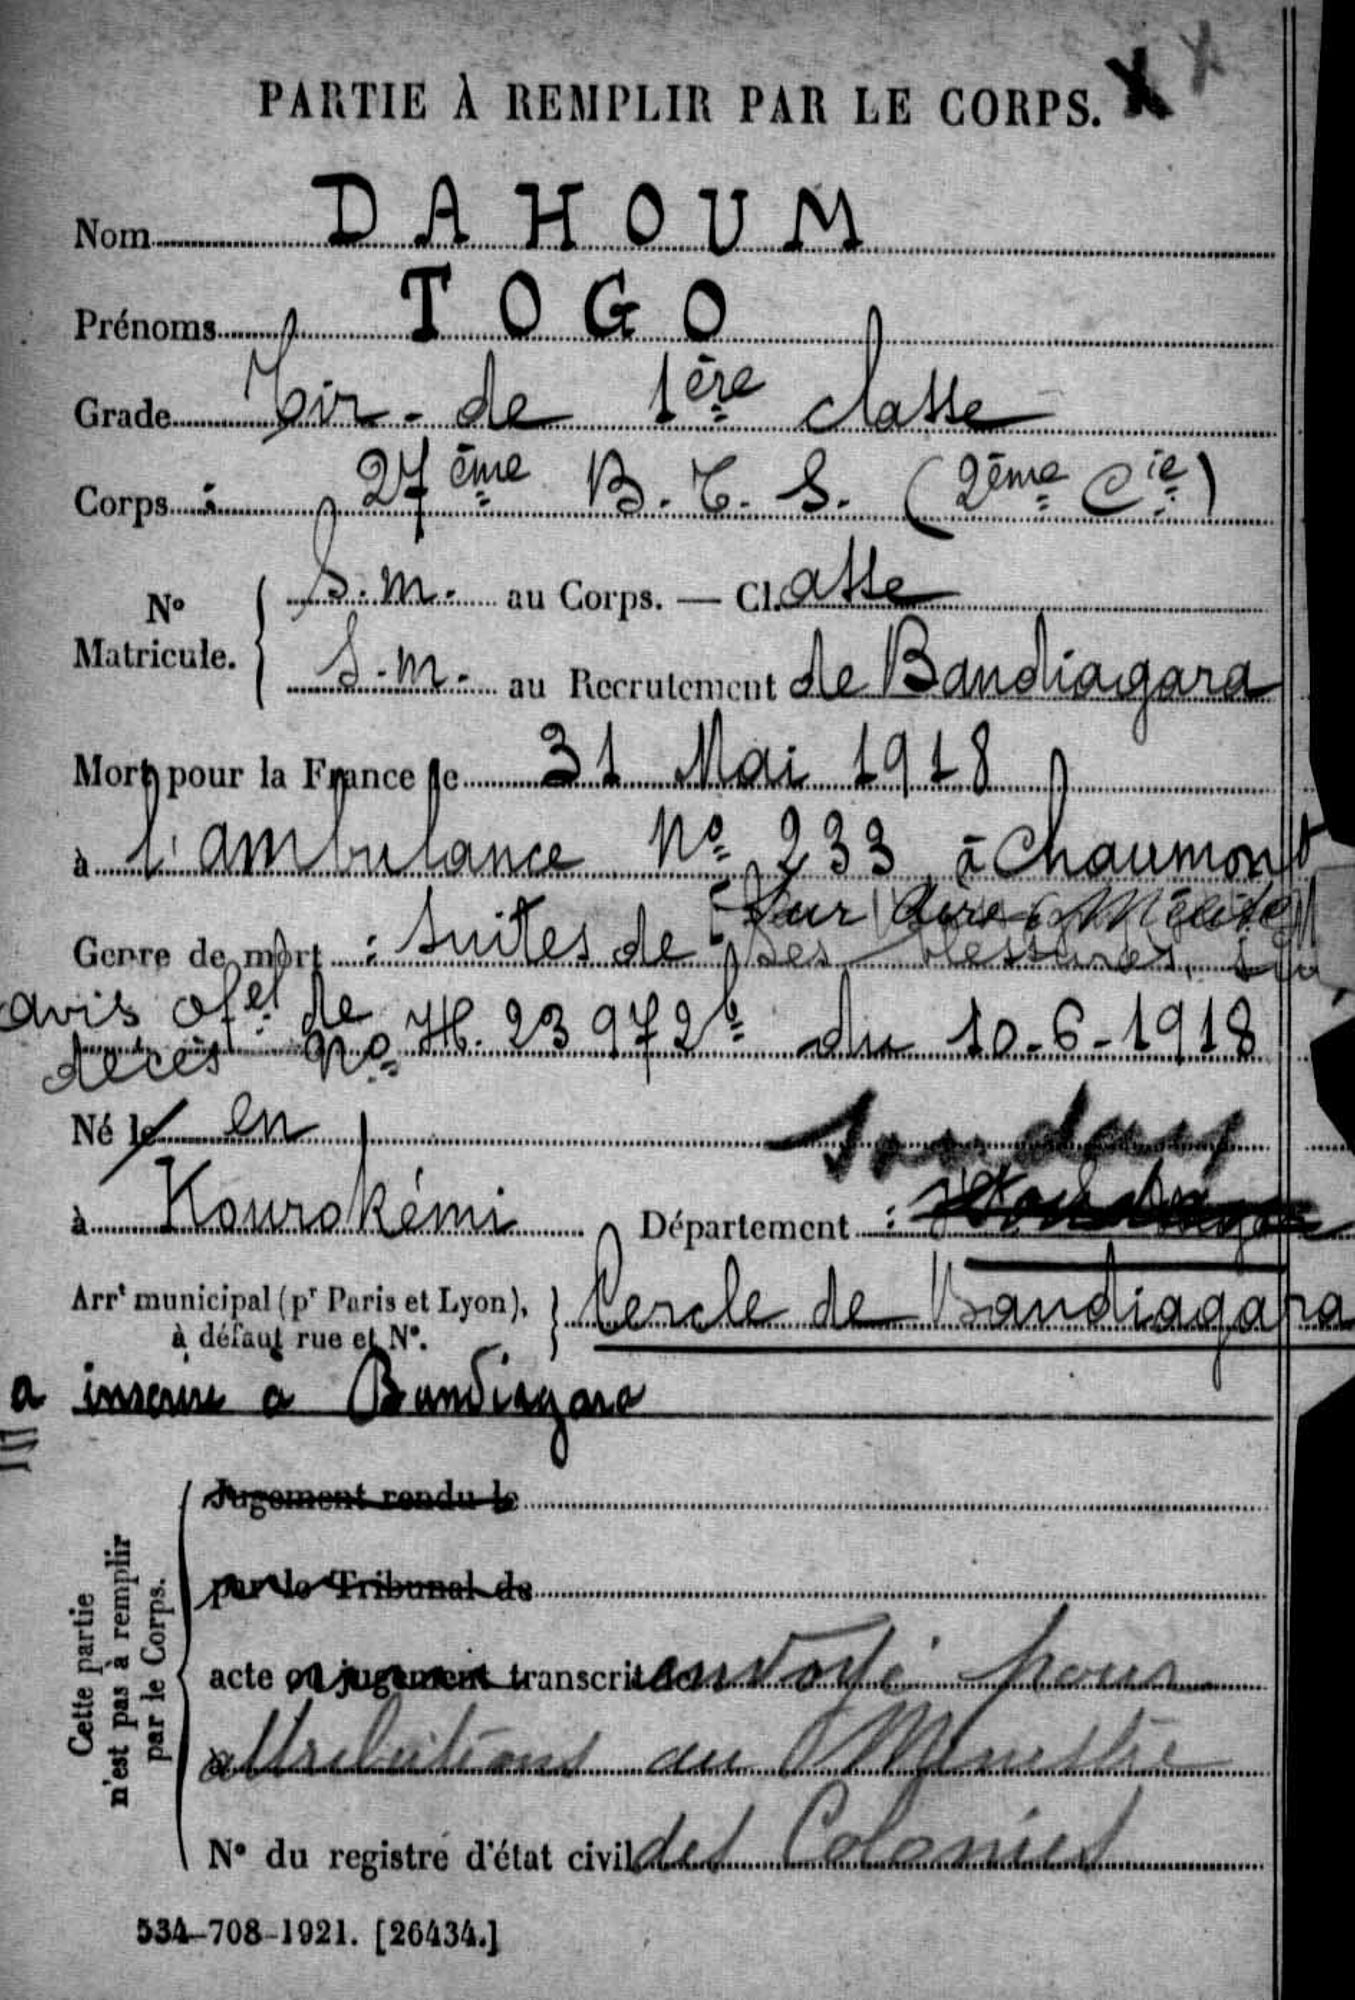 PARTIE À REMPLIR PAR LE CORPS.
Nom DAHOUM
Prénoms TOGO
Grade Tir. de 1ère classe
Corps : 27ème B. T. S. (2ème Cie)
N° Matricule. { S.m. au Corps. — Cl.asse
S.m. au Recrutement de Bandiagara
Mort pour la France le 31 Mai 1918
à l'ambulance No 233 à Chaumont
sur Aire (Meuse)
Genre de mort : Suites de ses blessures,
avis ofel de
décès No H. 23972b du 10-6-1918
Né le en Soudan
à Kourokémi Département :
Arrt municipal (pr Paris et Lyon), à défaut rue et N°. } Cercle de Bandiagara
a inscrire a Bandiagara
Cette partie n'est pas à remplir par le Corps.
Jugement rendu le
par le Tribunal de
acte ou jugement transcrit le envoyé pour
attributions au Ministre
N° du registre d'état civil des Colonies
534-708-1921. [26434.]